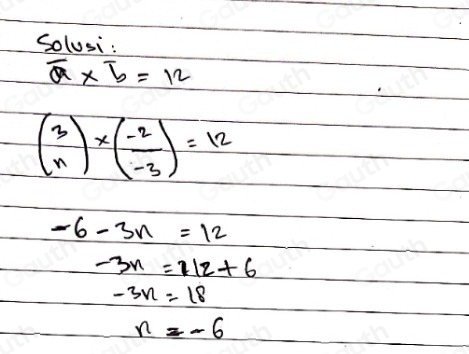 Solusi:
a̅ × b̅ = 12
(3 n) × (-2 -3) = 12
-6 - 3n = 12
-3n = 12 + 6
-3n = 18
n = -6